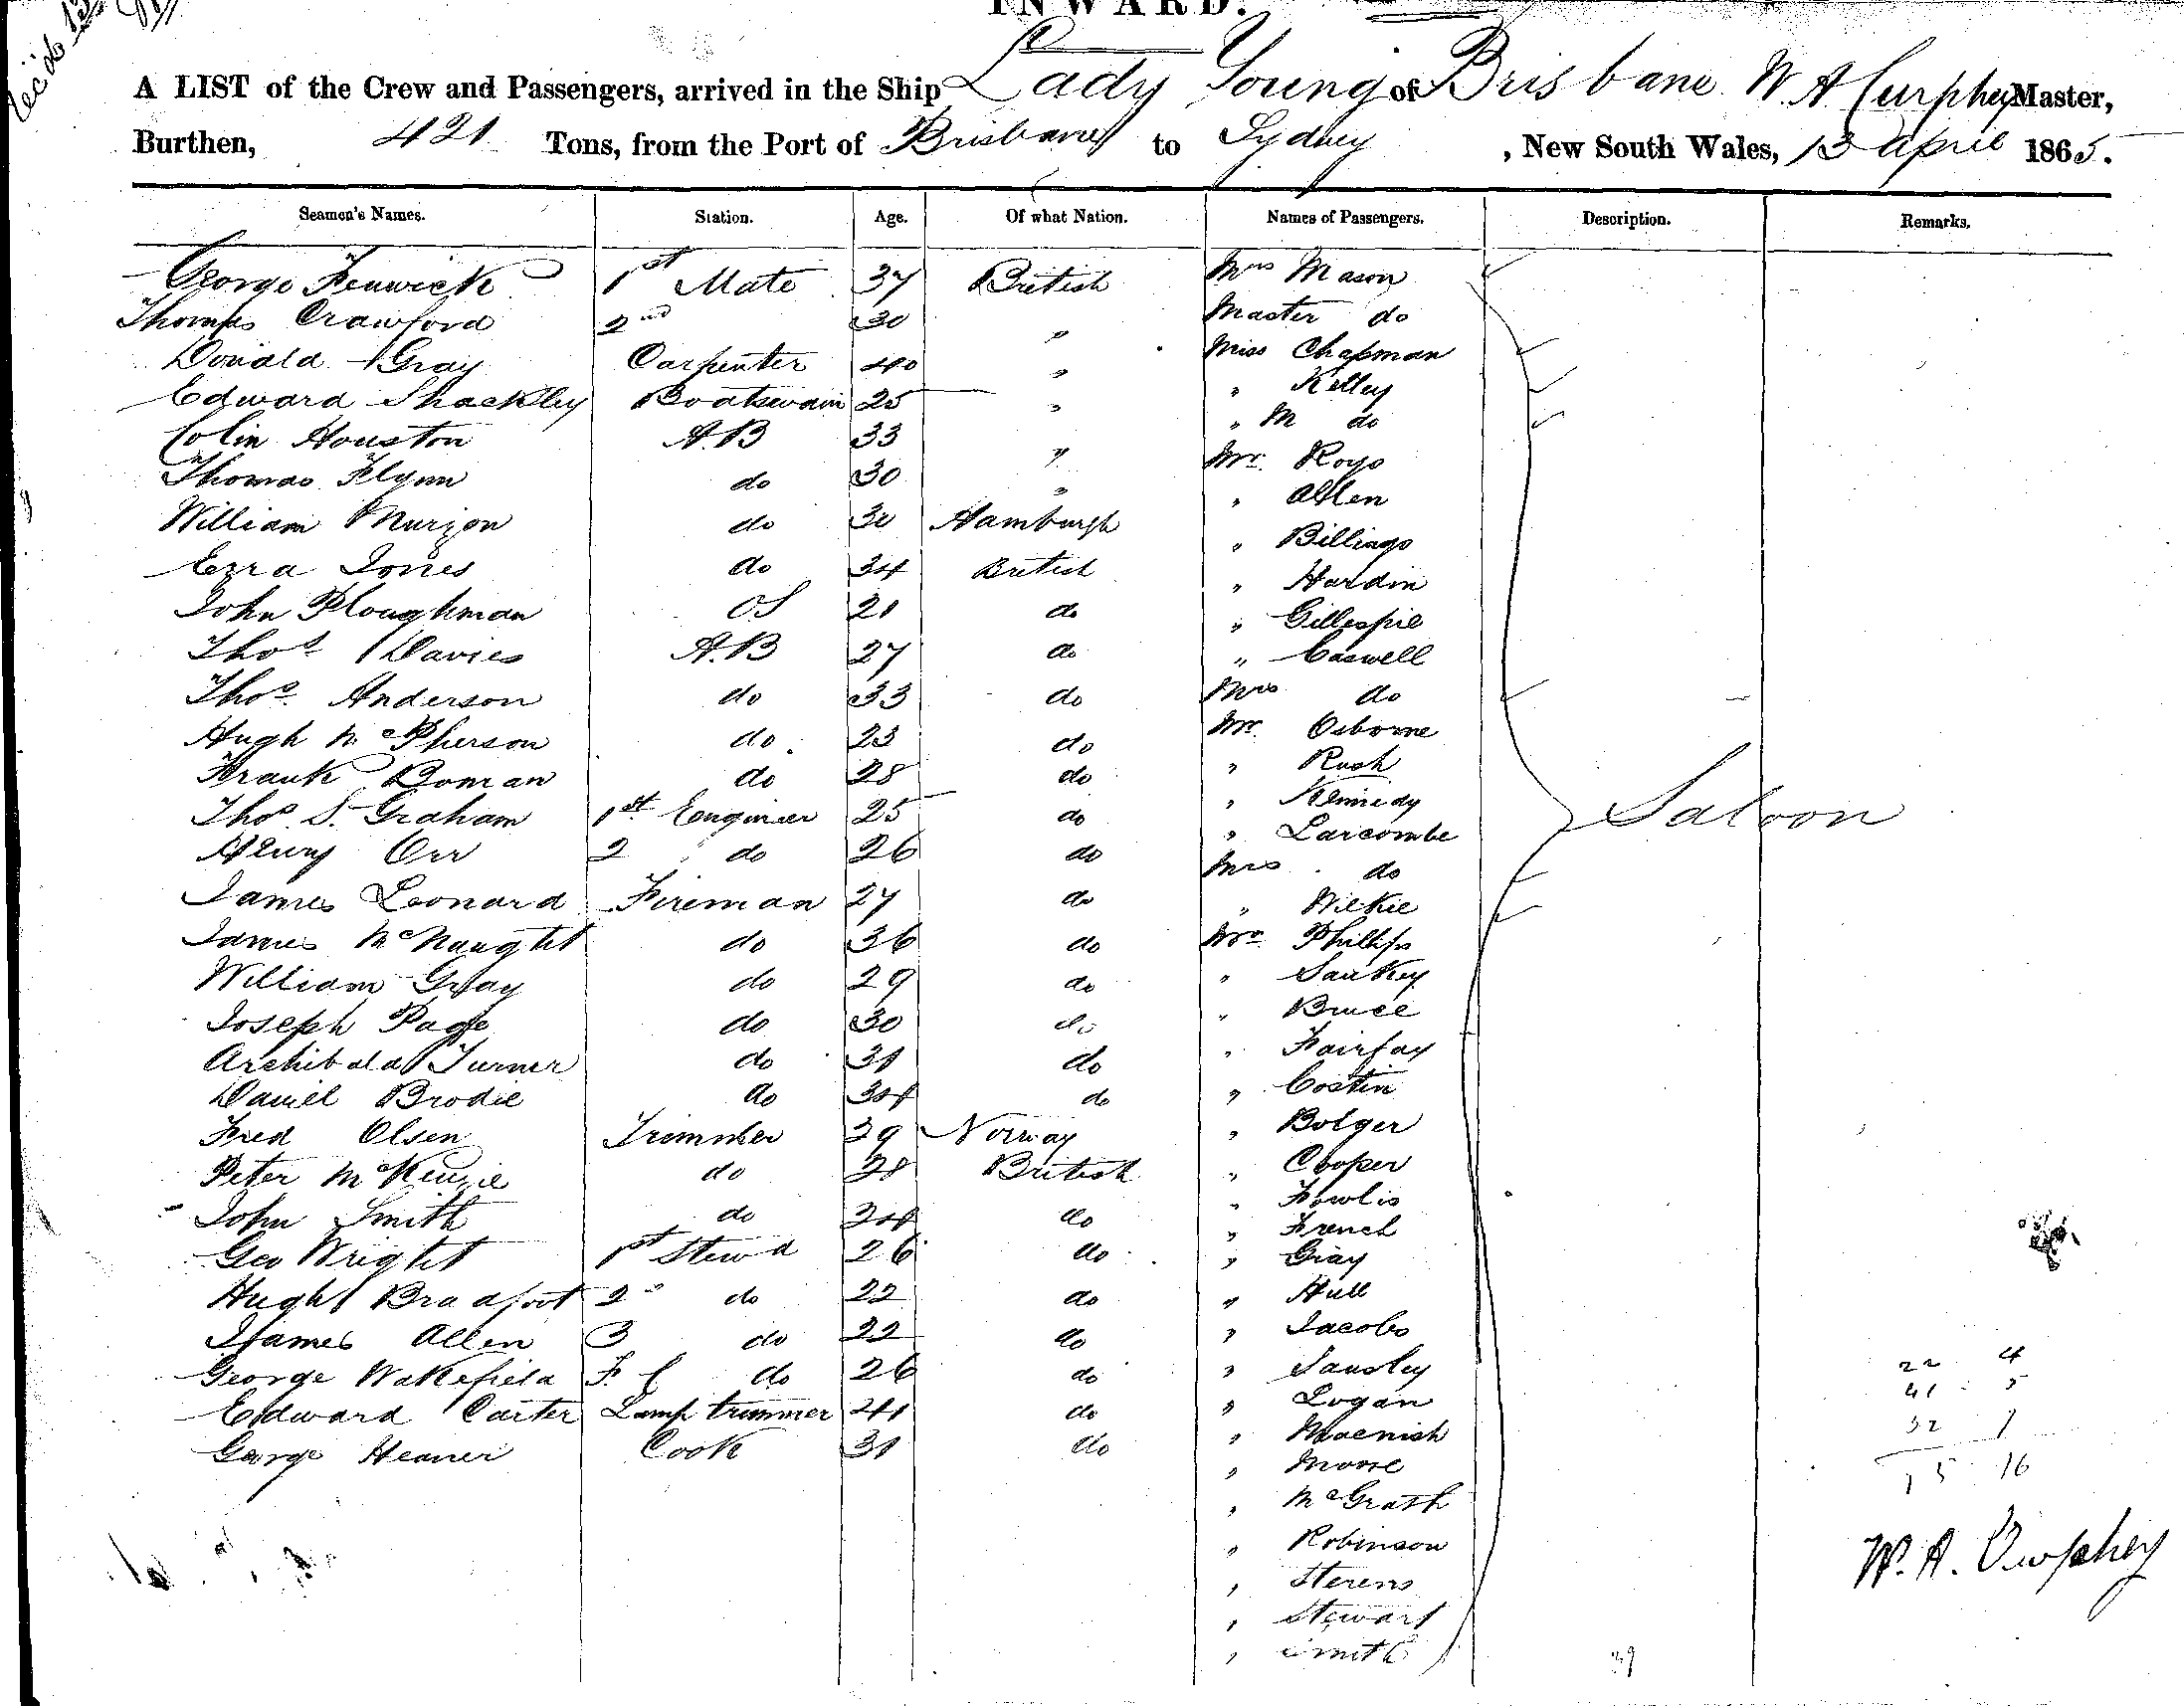 INWARD.
A LIST of the Crew and Passengers, arrived in the Ship Lady Young of Brisbane W. A Curphey Master,
Burthen, 421 Tons, from the Port of Brisbane to Sydney, New South Wales, 13 April 1865.
Seamen's Names. Station. Age. Of what Nation. Names of Passengers. Description. Remarks.
George Fenwick 1st Mate 37 British Mrs Mason
Thomas Crawford 2nd 30 " Master do
Donald Gray Carpenter 40 " Miss Chapman
Edward Shackley Boatswain 25 " " Kelley
Colin Houston A.B 33 " " M do
Thomas Flynn do 30 " Mr. Royo
William Murjon do 30 Hamburgh " Allen
Ezra Jones do 34 British " Billings
John Ploughman OS 21 do " Hardin
Thos Davies A.B 27 do " Gillespie
Thos Anderson do 33 do " Caswell
Hugh McPherson do 23 do Mrs do
Frank Boman do 28 do Mr Osborne
Thos S. Graham 1st Engineer 25 do " Rush
Henry Orr 2 do 26 do " Kennedy
James Leonard Fireman 27 do " Larcombe
James McNaught do 36 do Mrs do
William Gray do 29 do " Wilkie
Joseph Page do 30 do Phillips
Archibald Turner do 31 do " Sankey
Daniel Brodie do 34 do " Bruce
Fred Olsen Trimmer 29 Norway " Fairfax
Peter McKenzie do 28 British " Costin
John Smith do 24 do " Bolger
Geo Wright 1st Stewd 26 do " Cooper
Hugh Bradfoot 2 do 22 do " Fowlis
James Allen 3 do 22 do " French
George Wakefield F. C do 26 do " Gray
Edward Carter Lamp trimmer 21 do " Hull
George Heaner Cook 31 do " Jacobs
" Lansley
" Logan
" Macnish
" Moore
" McGrath
" Robinson
" Sterens
" Stewart
" Smith
Saloon
22 4
41 5
32 7
15 16
W. A. Curphey
39